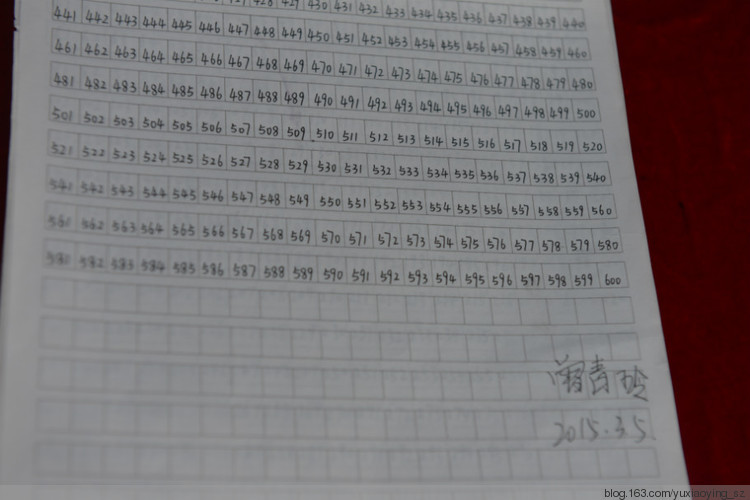 427 428 429 430 431 432 433 434 435 436 437 438 439 440
441 442 443 444 445 446 447 448 449 450 451 452 453 454 455 456 457 458 459 460
461 462 463 464 465 466 467 468 469 470 471 472 473 474 475 476 477 478 479 480
481 482 483 484 485 486 487 488 489 490 491 492 493 494 495 496 497 498 499 500
501 502 503 504 505 506 507 508 509 510 511 512 513 514 515 516 517 518 519 520
521 522 523 524 525 526 527 528 529 530 531 532 533 534 535 536 537 538 539 540
541 542 543 544 545 546 547 548 549 550 551 552 553 554 555 556 557 558 559 560
561 562 563 564 565 566 567 568 569 570 571 572 573 574 575 576 577 578 579 580
581 582 583 584 585 586 587 588 589 590 591 592 593 594 595 596 597 598 599 600
曾青玲
2015.3.5
blog.163.com/yuxiaoying_cz